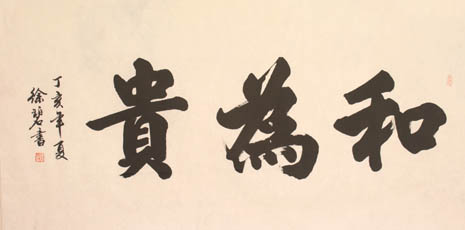 和為貴
丁亥年夏
徐碧書